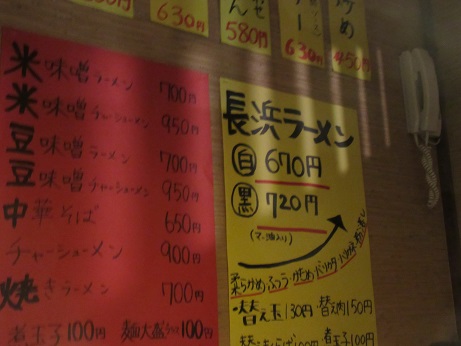 630円
580円
630円
450円
米味噌ラーメン 700円
米味噌チャーシューメン 950円
豆味噌ラーメン 700円
豆味噌チャーシューメン 950円
中華そば 650円
チャーシューメン 900円
焼きラーメン 700円
煮玉子100円 麺大盛 100円
長浜ラーメン
白 670円
黒 720円
(マー油入り)
柔らかめ ふつう かため バリカタ
替え玉130円 替え肉150円
100円 煮玉子100円